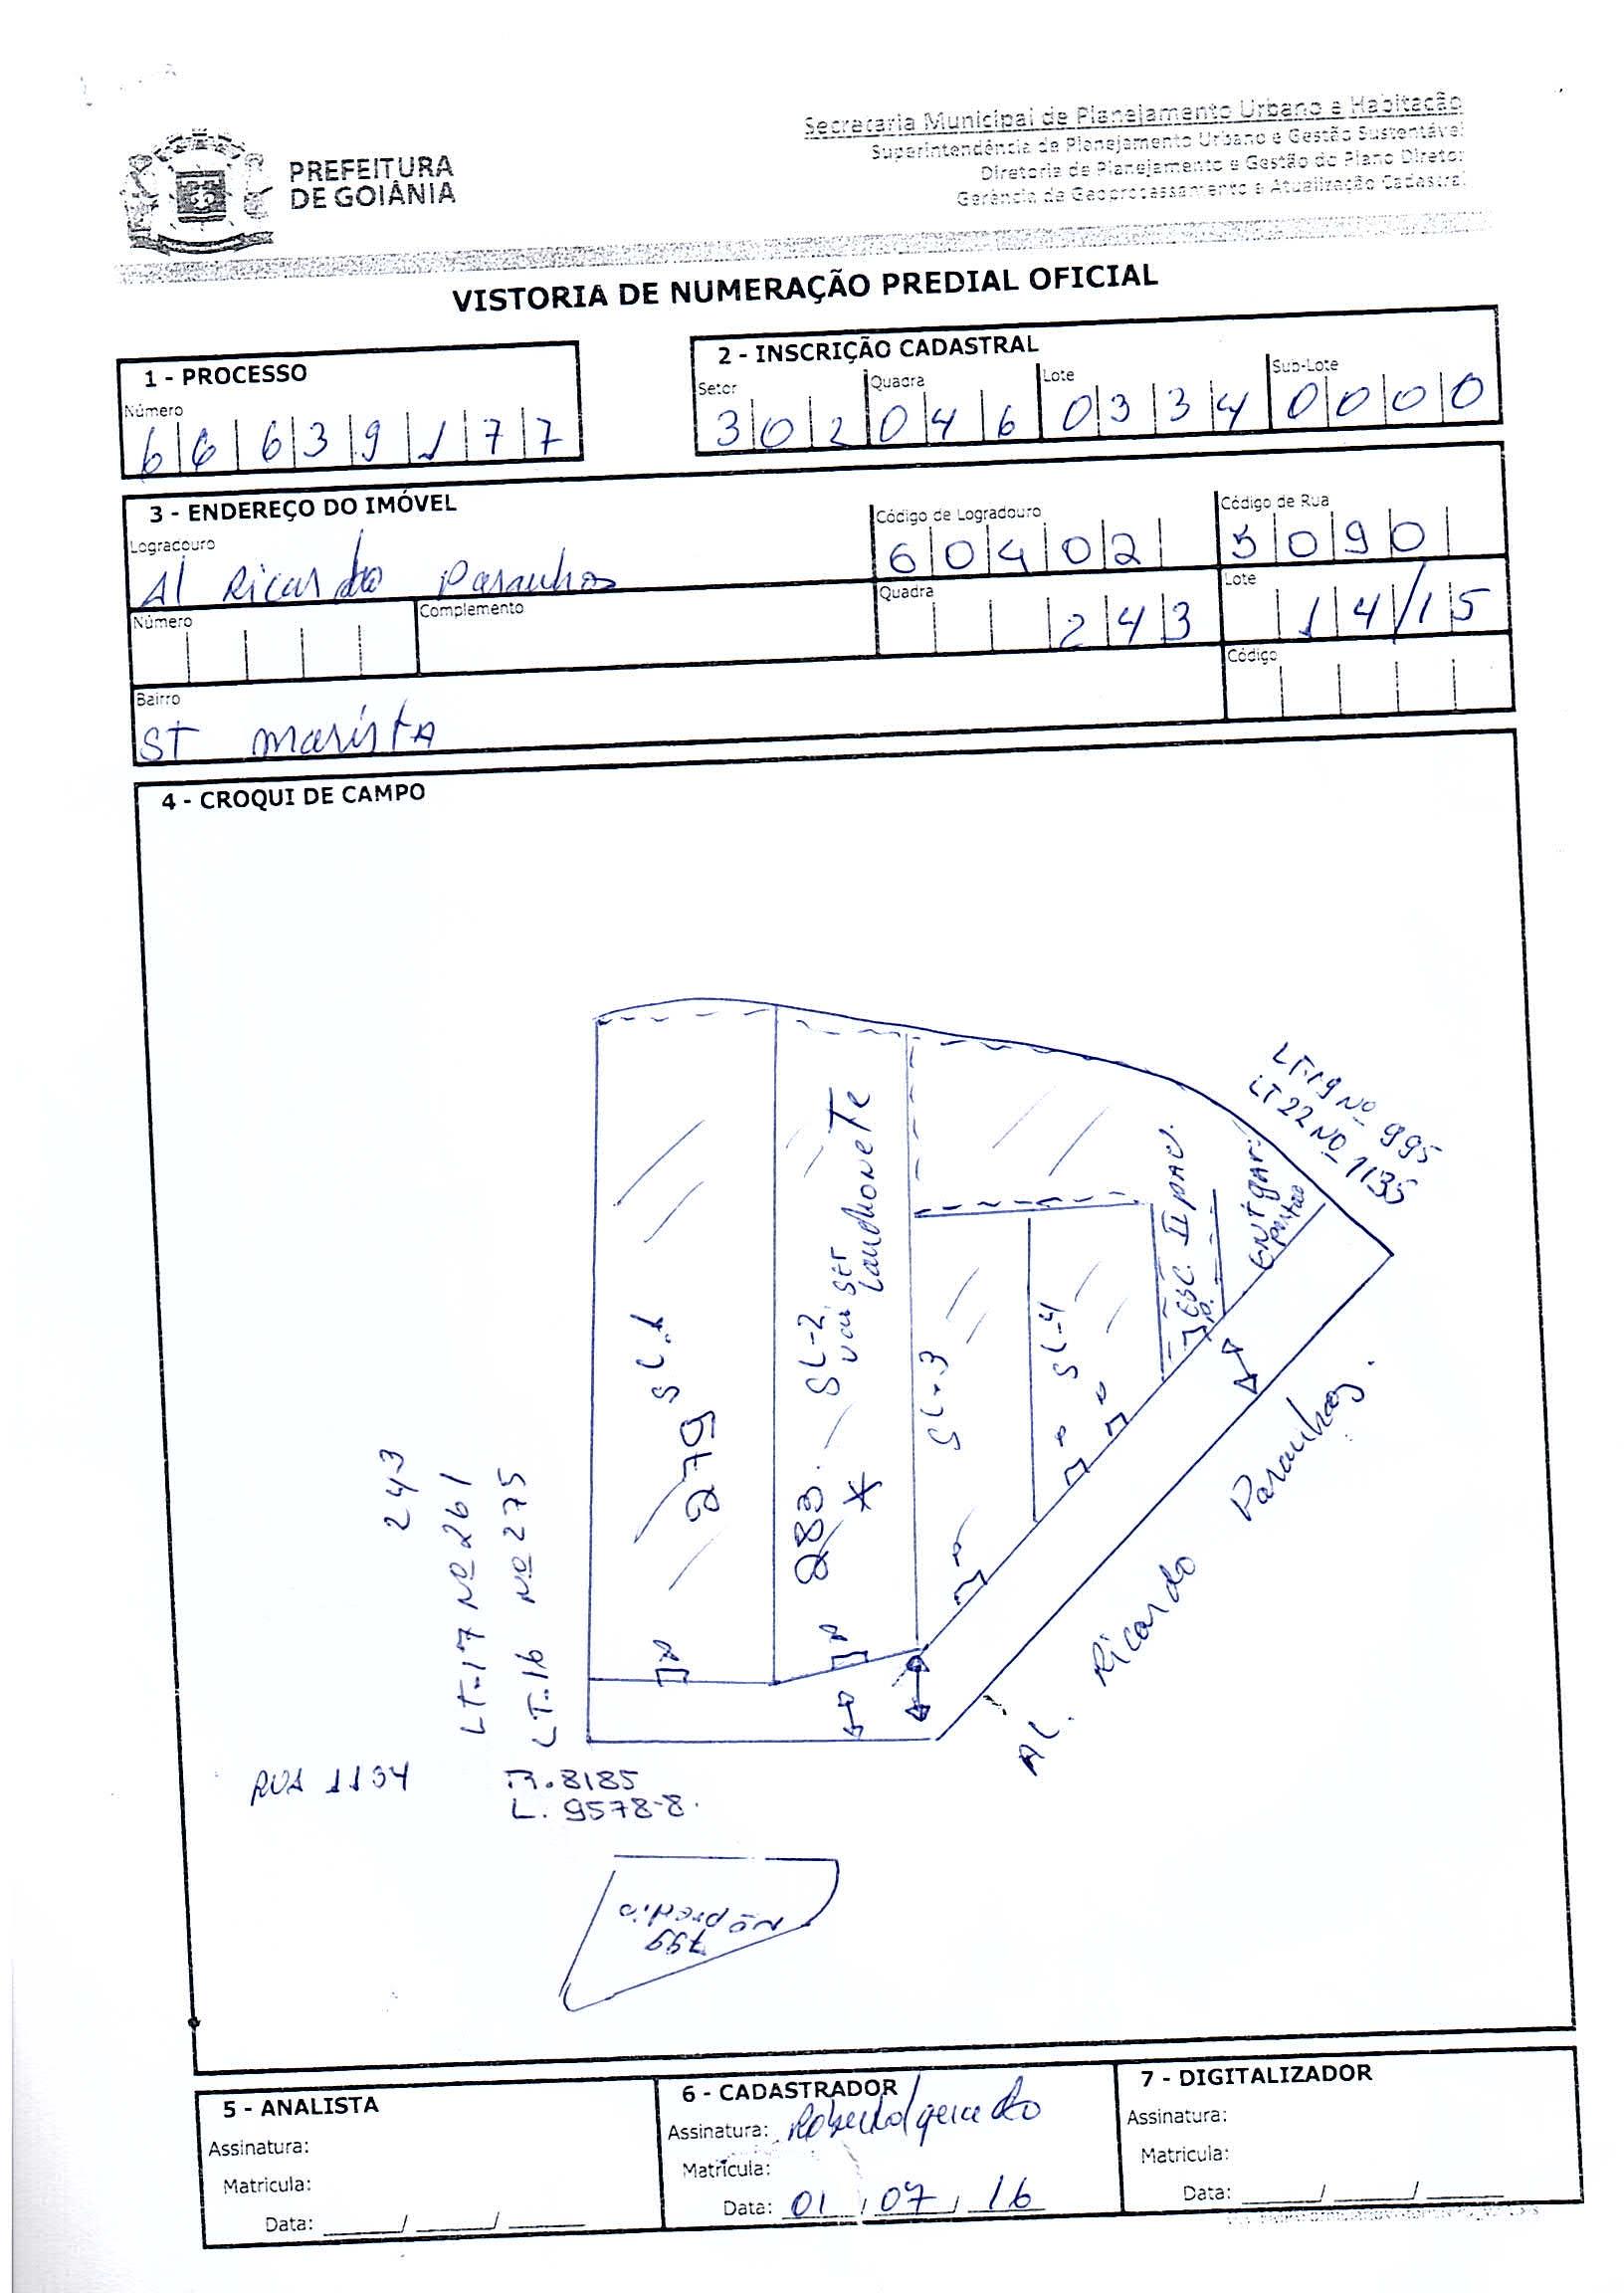 PREFEITURA
DE GOIÂNIA
Secretaria Municipal de Planejamento Urbano e Habitação
Superintendência de Planejamento Urbano e Gestão Sustentável
Diretoria de Planejamento e Gestão do Plano Diretor
Gerência de Geoprocessamento e Atualização Cadastral
VISTORIA DE NUMERAÇÃO PREDIAL OFICIAL
1 - PROCESSO
Número
66639177
2 - INSCRIÇÃO CADASTRAL
Setor Quadra Lote Sub-Lote
302 046 0334 0000
3 - ENDEREÇO DO IMÓVEL
Logradouro Código de Logradouro Código de Rua
Al Ricardo Paranhos 60402 5090
Número Complemento Quadra Lote
243 14/15
Bairro Código
ST MARISTA
4 - CROQUI DE CAMPO
LT.19 Nº 995
LT 22 Nº 1135
ESC. II PAV.
ENT GAR.
portão
SL.1
279
SL-2
vai ser
LanchoneTe
283
*
SL-3
SL-4
243
LT-17 Nº 261
LT-16 Nº 275
AL. Ricardo Paranhos.
RUA 1134
R. 8185
L. 9578-8.
Nº predio
799
5 - ANALISTA
Assinatura:
Matrícula:
Data: ____/____/____
6 - CADASTRADOR
Assinatura:
Matrícula:
Data: 01/07/16
7 - DIGITALIZADOR
Assinatura:
Matrícula:
Data: ____/____/____